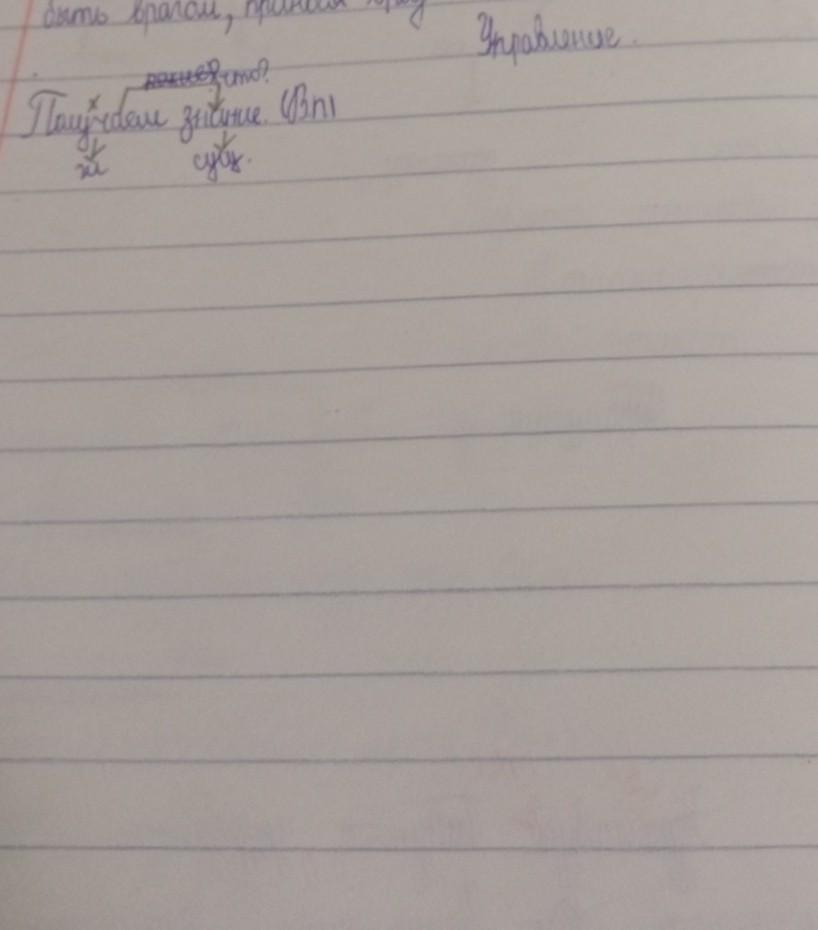 быть врагом,
Управление.
что?
Получаем знание (Вп)
гл
сущ.